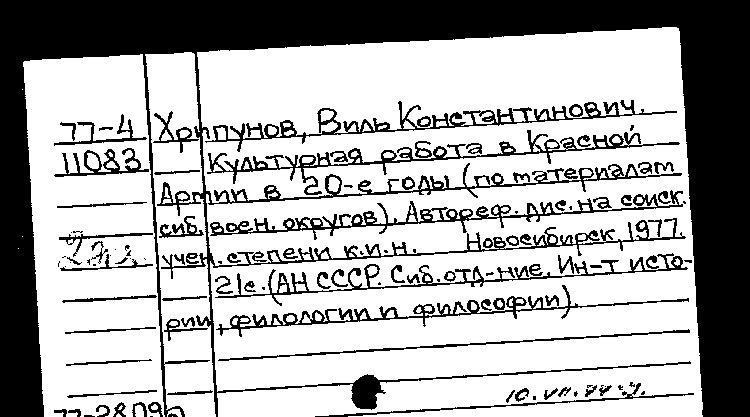 77-4 Хрипунов, Виль Константинович.
11083 Культурная работа в Красной
Армии в 20-е годы (по материалам
сиб. воен. округов). Автореф. дис. на соиск.
2 эк.
учен. степени к.и.н. Новосибирск, 1977.
21с. (АН СССР. Сиб. отд-ние. Ин-т исто-
рии, филологии и философии).